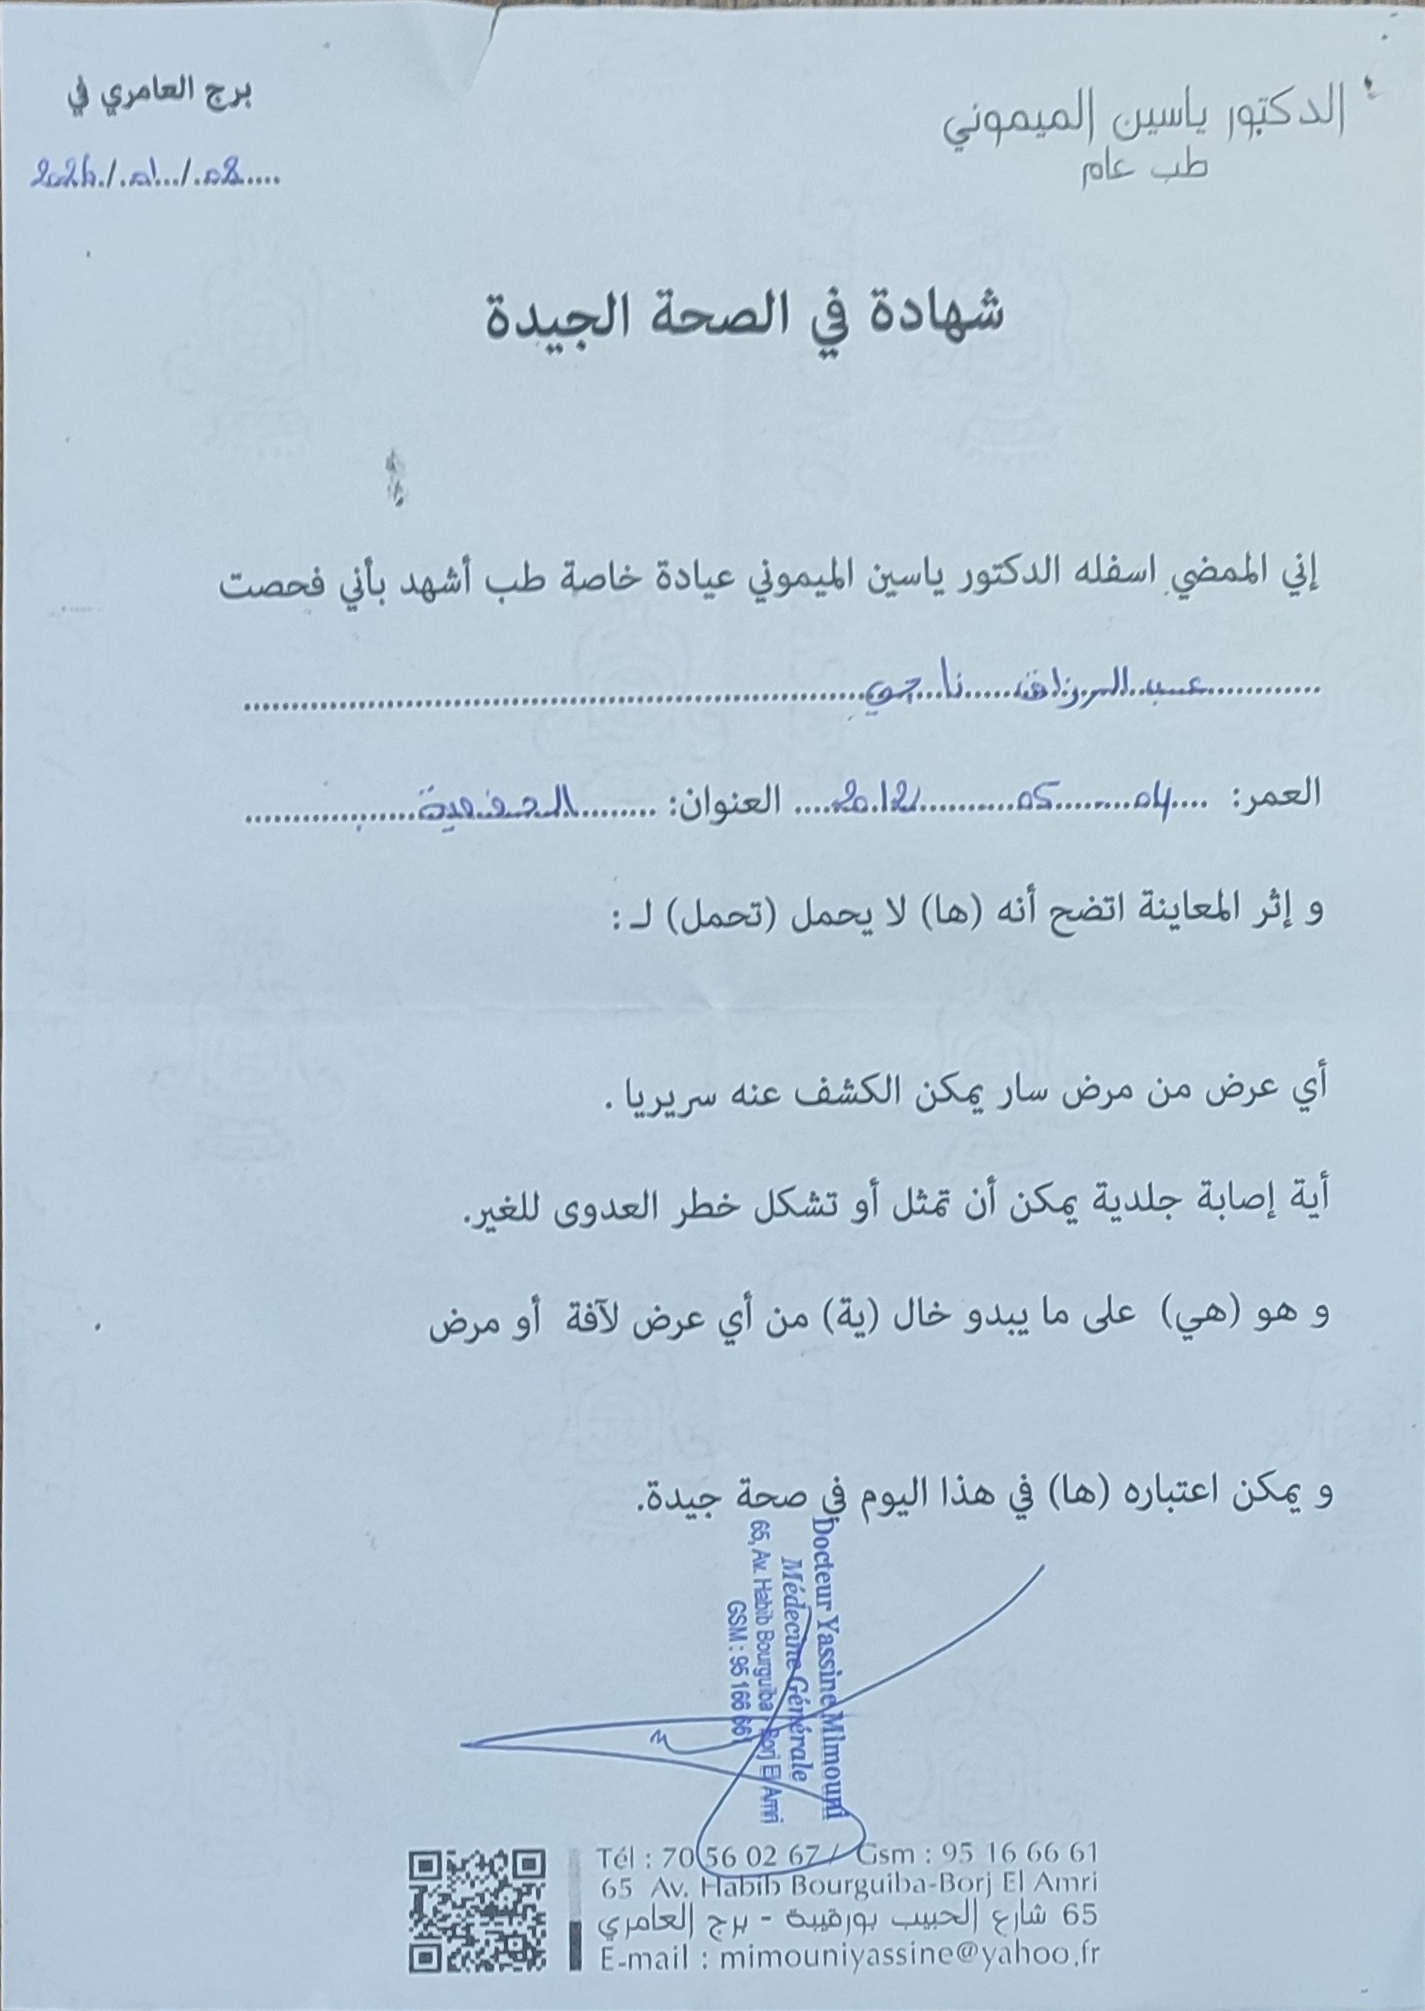 الدكتور ياسين الميموني
طب عام
برج العامري في
....08./...01./.2026
شهادة في الصحة الجيدة
إني الممضي اسفله الدكتور ياسين الميموني عيادة خاصة طب أشهد بأني فحصت
عبد الرزاق ناجي
العمر: 04 05 2012 العنوان:
و إثر المعاينة اتضح أنه (ها) لا يحمل (تحمل) لـ :
أي عرض من مرض سار يمكن الكشف عنه سريريا .
أية إصابة جلدية يمكن أن تمثل أو تشكل خطر العدوى للغير.
و هو (هي) على ما يبدو خال (ية) من أي عرض لآفة أو مرض
و يمكن اعتباره (ها) في هذا اليوم في صحة جيدة.
Docteur Yassine Mimouni
Médecine Générale
65, Av. Habib Bourguiba - Borj El Amri
GSM : 95 166 661
Tél : 70 56 02 67 / Gsm : 95 16 66 61
65 Av. Habib Bourguiba-Borj El Amri
65 شارع الحبيب بورقيبة - برج العامري
E-mail : mimouniyassine@yahoo.fr